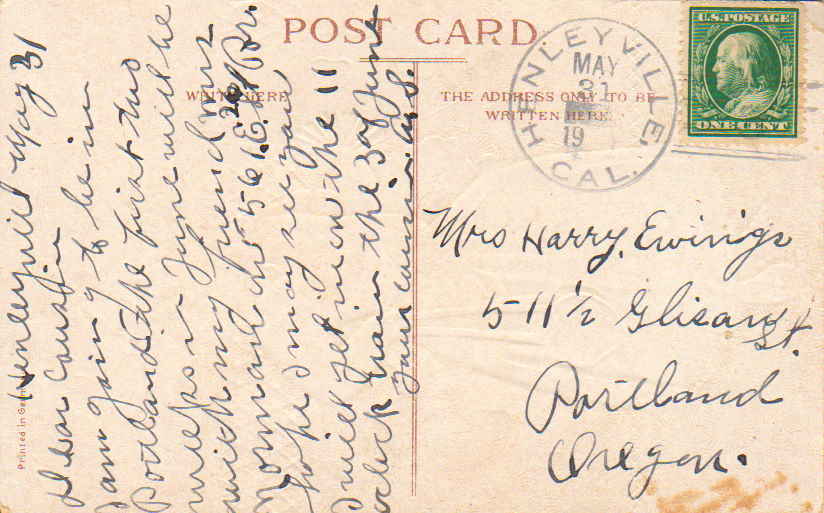 POST CARD
WRITE HERE
THE ADDRESS ONLY TO BE
WRITTEN HERE
HENLEYVILLE, CAL.
MAY
31
19
U.S. POSTAGE
ONE CENT
Henleyvill May 31
Dear Cousin
I am going to be in
Portland the first two
weeks in June will be
with my friend Mrs
561 E
hope I may see you
I will get in on the 11
oclock train the 3 of June
your cousin
Mrs Harry Ewings
511½ Glisan St.
Portland
Oregon.
Printed in Ger